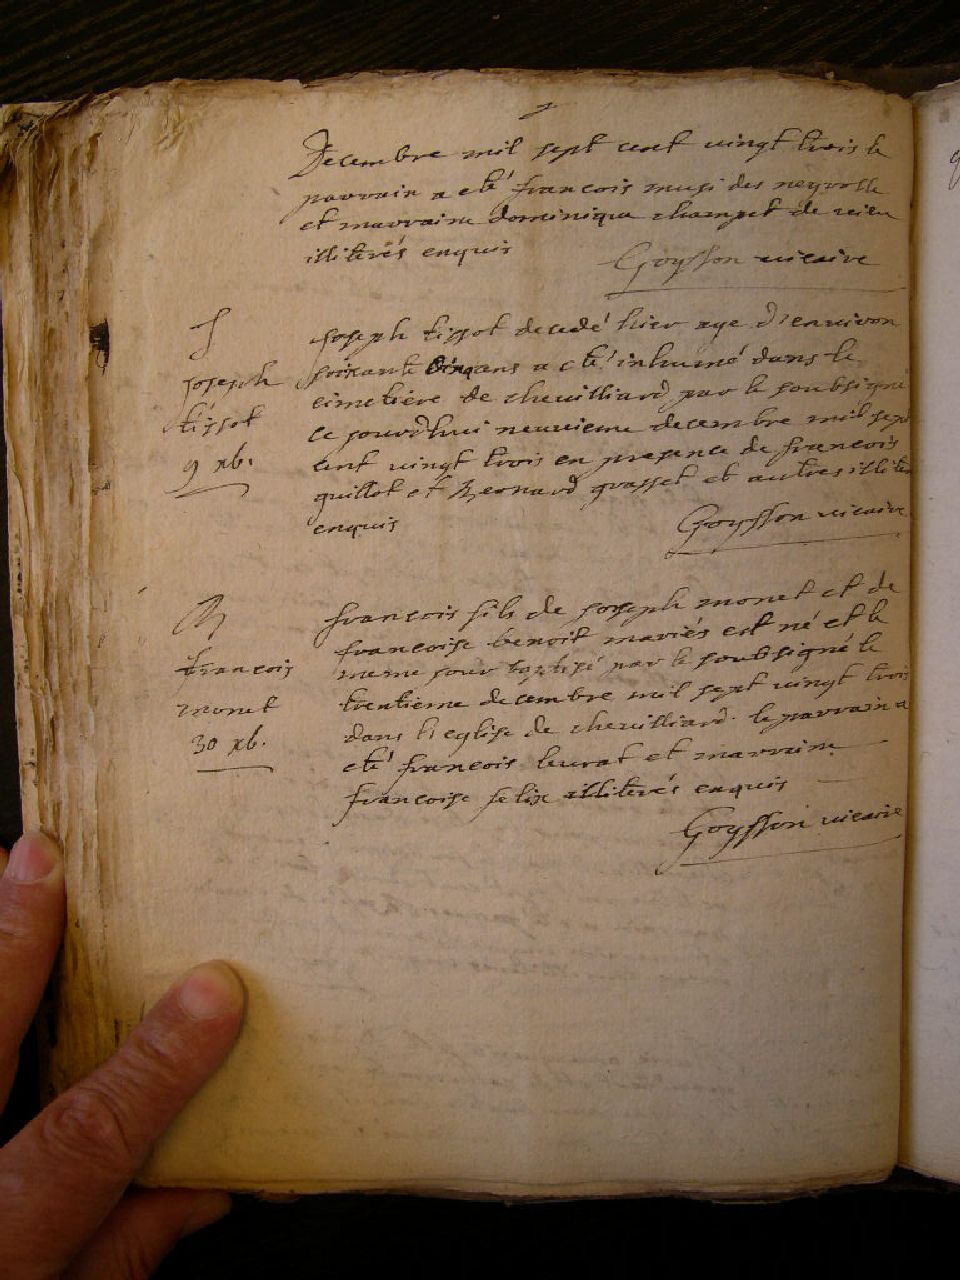 Decembre mil sept cent vingt trois le
parrain a eté françois musi des neyrolle
et marraine dominique champet de
illiterés enquis
Goysson vicaire
S
joseph
tissot
9 xb.
joseph tissot decedé hier age d'environ
soixante cinq ans a eté inhumé dans le
cimetière de chevilliard par le soubsigné
ce jourdhui neuvieme decembre mil sept
cent vingt trois en presence de françois
guillot et Bernard grasset et autres illiter
enquis
Goysson vicaire
B
francois
monet
30 xb.
francois fils de joseph monet et de
francoise benoit mariés est né et le
meme jour baptisé par le soubsigné le
trentieme decembre mil sept vingt trois
dans l'eglise de chevilliard. le parrain a
eté françois burat et marraine
francoise felix illiterés enquis
Goysson vicaire